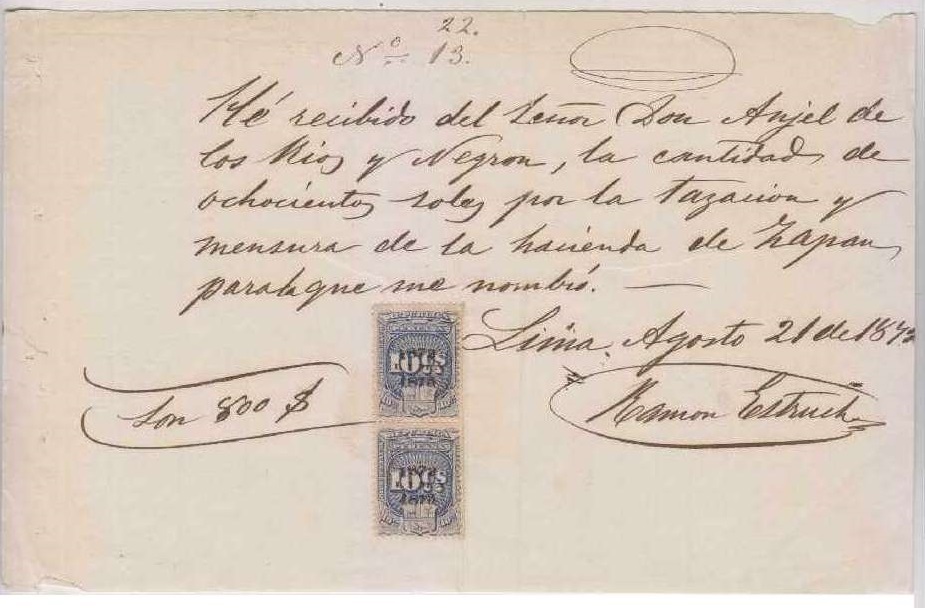 22.
Nº 13.
Hé recibido del Señor Don Anjel de
los Rios y Negron, la cantidad de
ochocientos soles por la tazacion y
mensura de la hacienda de Zapan,
para la que me nombró. —
Lima, Agosto 21 de 187
Son 800 $
Ramon Estruch
10 CS
1873
10 CS
1873